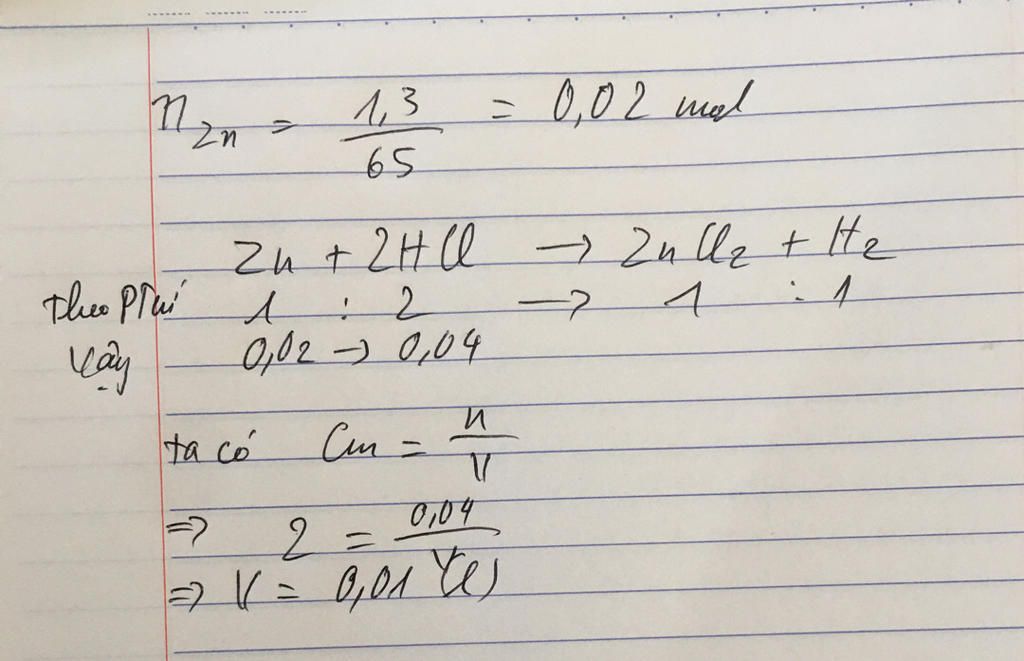 n Zn = 1,3 / 65 = 0,02 mol
Zn + 2HCl → ZnCl2 + H2
Theo PThh 1 : 2 → 1 : 1
Vậy 0,02 → 0,04
ta có Cm = n / V
=> 2 = 0,04 / V
=> V = 0,01 (l)